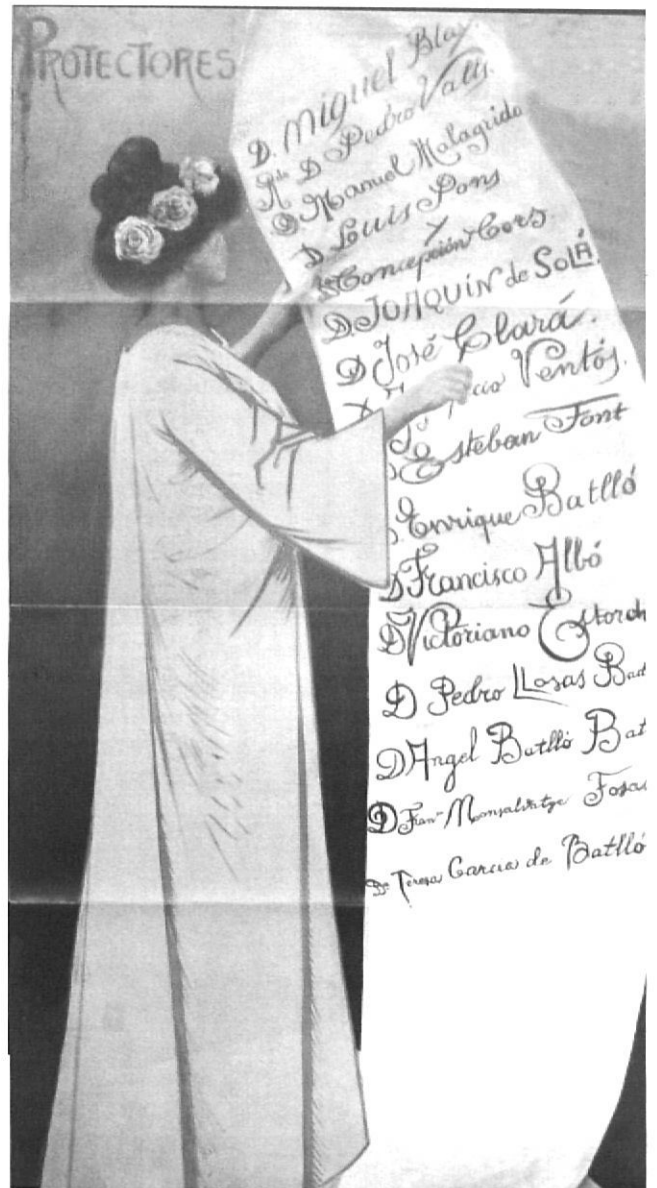 PROTECTORES
D. Miguel Blay.
Rdo D Pedro Valls.
D Manuel Malagrida
D Louis Pons
Y
Da Concepción Cors.
D. JOAQUÍN de SOLÁ.
D José Clará.
Ventós.
D Esteban Font
D Enrique Batlló
D Francisco Albó
D Victoriano Estorch
D Pedro Llosas Bad
D Angel Batlló Bat
D Fran.co Monsalvatge Fosas
Da Teresa Garcia de Batlló